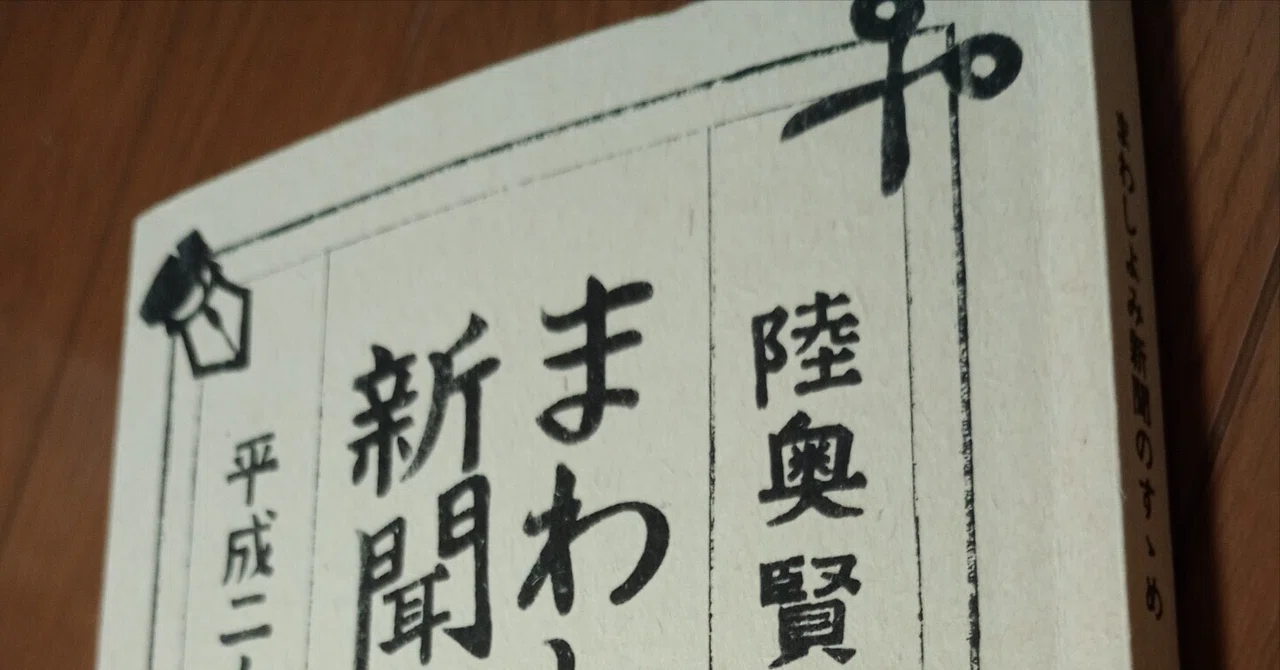 陸奥賢
まわし
新聞
平成二
まわしよみ新聞のすゝめ